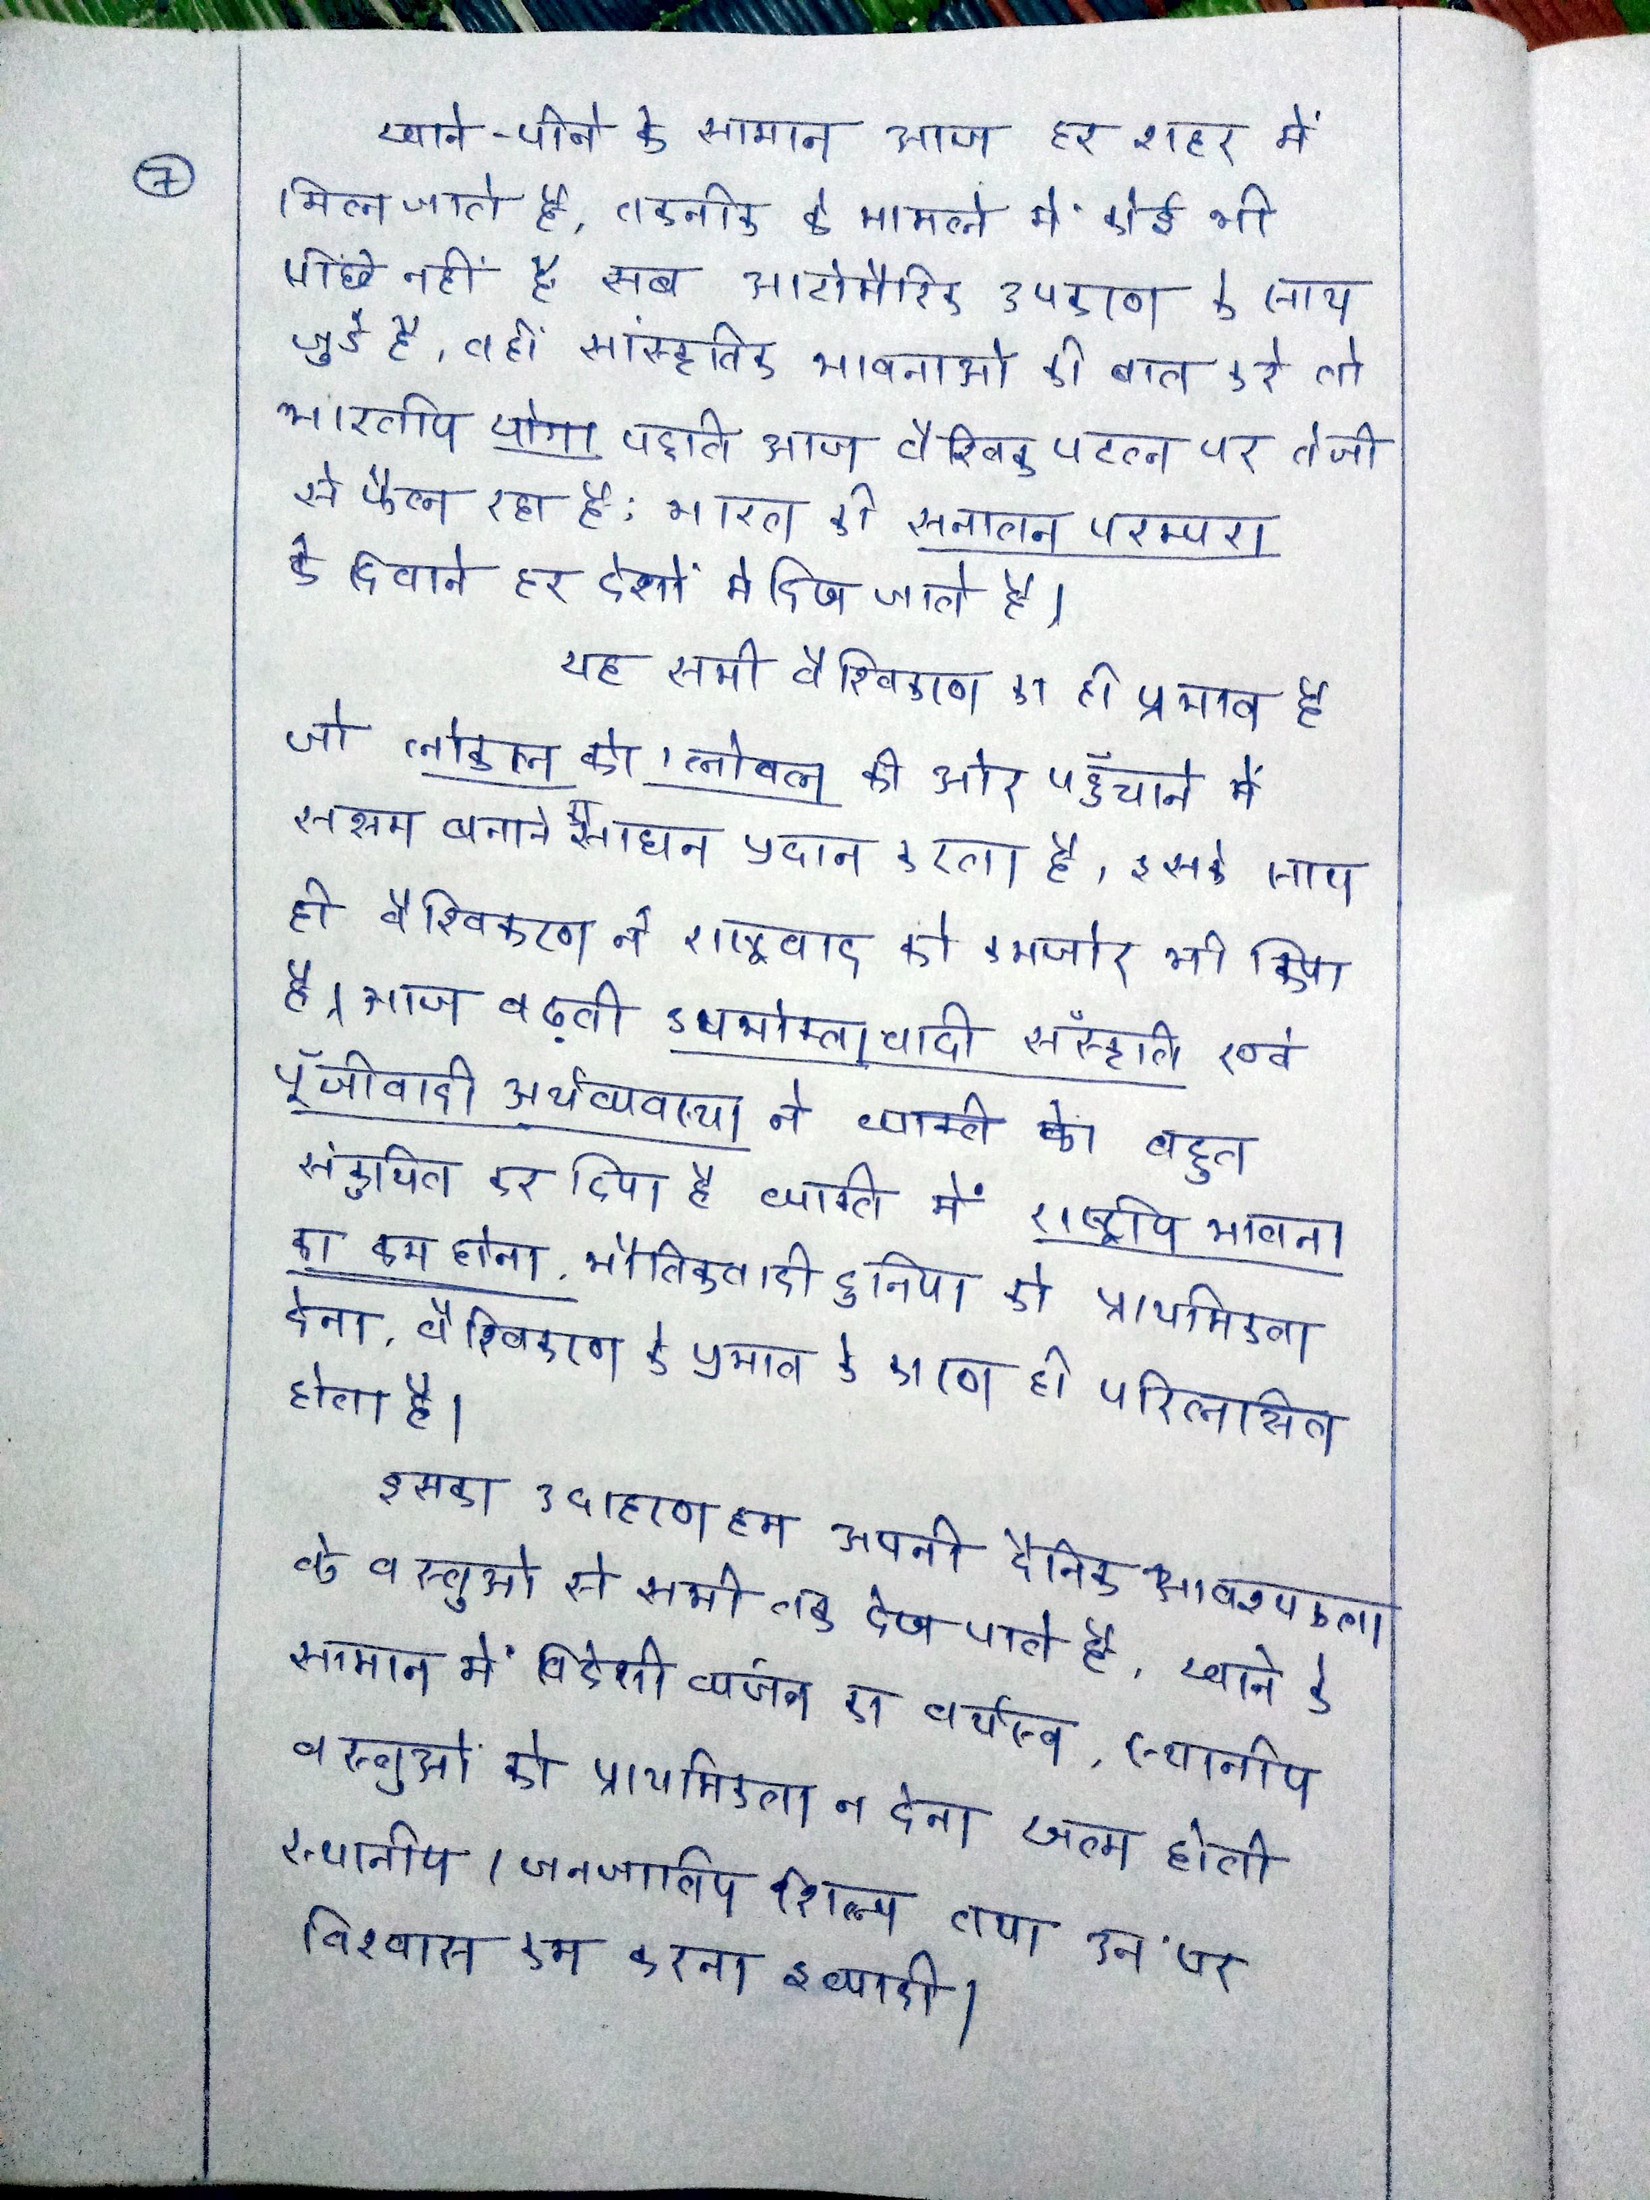 खाने-पीने के सामान आज हर शहर में
⑦
मिल जाते है, तकनीक के मामले में कोई भी
पीछे नहीं है सब आटोमैटिक उपकरण के साथ
जुडे है, वहीं सांस्कृतिक भावनाओ की बात करे तो
भारतीय योगा पद्दति आज वैश्विक पटल पर तेजी
से फैल रहा है; भारत की सनातन परम्परा
के दिवाने हर देशों मे दिख जाते है।
यह सभी वैश्विकरण का ही प्रभाव है
जो लोकल को ग्लोबल की ओर पहुँचाने में
सक्षम बनाने साधन प्रदान करता है, इसके साथ
ही वैश्विकरण ने राष्ट्रवाद को कमजोर भी किया
है। आज बढ़ती उपभोक्तावादी सँस्कृति एवं
पूँजीवादी अर्थव्यवस्था ने व्यक्ति को बहुत
संकुचित कर दिया है व्यक्ति में राष्ट्रीय भावना
का कम होना, भौतिकवादी दुनिया को प्राथमिकता
देना, वैश्विकरण के प्रभाव के कारण ही परिलक्षित
होता है।
इसका उदाहरण हम अपनी दैनिक आवश्यकता
के वस्तुओ से सभी तक देख पाते है, खाने के
सामान में विदेशी व्यंजन का वर्चस्व, स्थानीय
वस्तुओं को प्राथमिकता न देना खत्म होती
स्थानीय / जनजातिय शिल्प तथा उन पर
विश्वास कम करना इत्यादी।